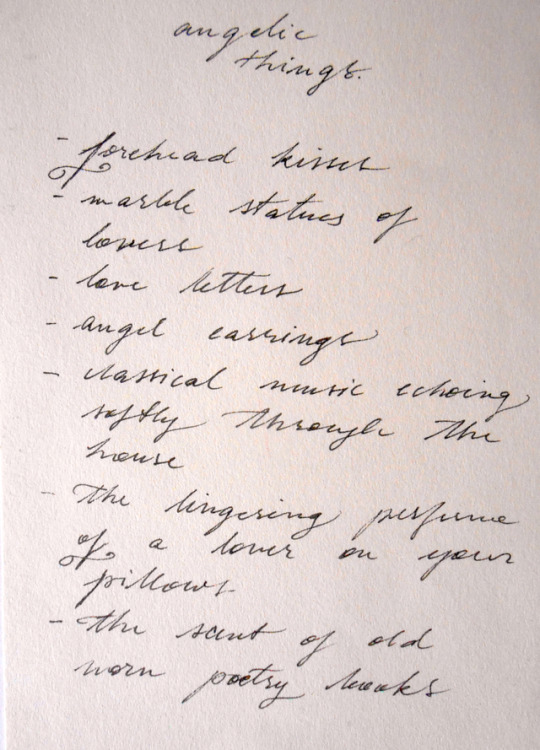 angelic
things.
- forehead kisses
- marble statues of
lovers
- love letters
- angel earrings
- classical music echoing
softly through the
house
- the lingering perfume
of a lover on your
pillows
- the scent of old
worn poetry books